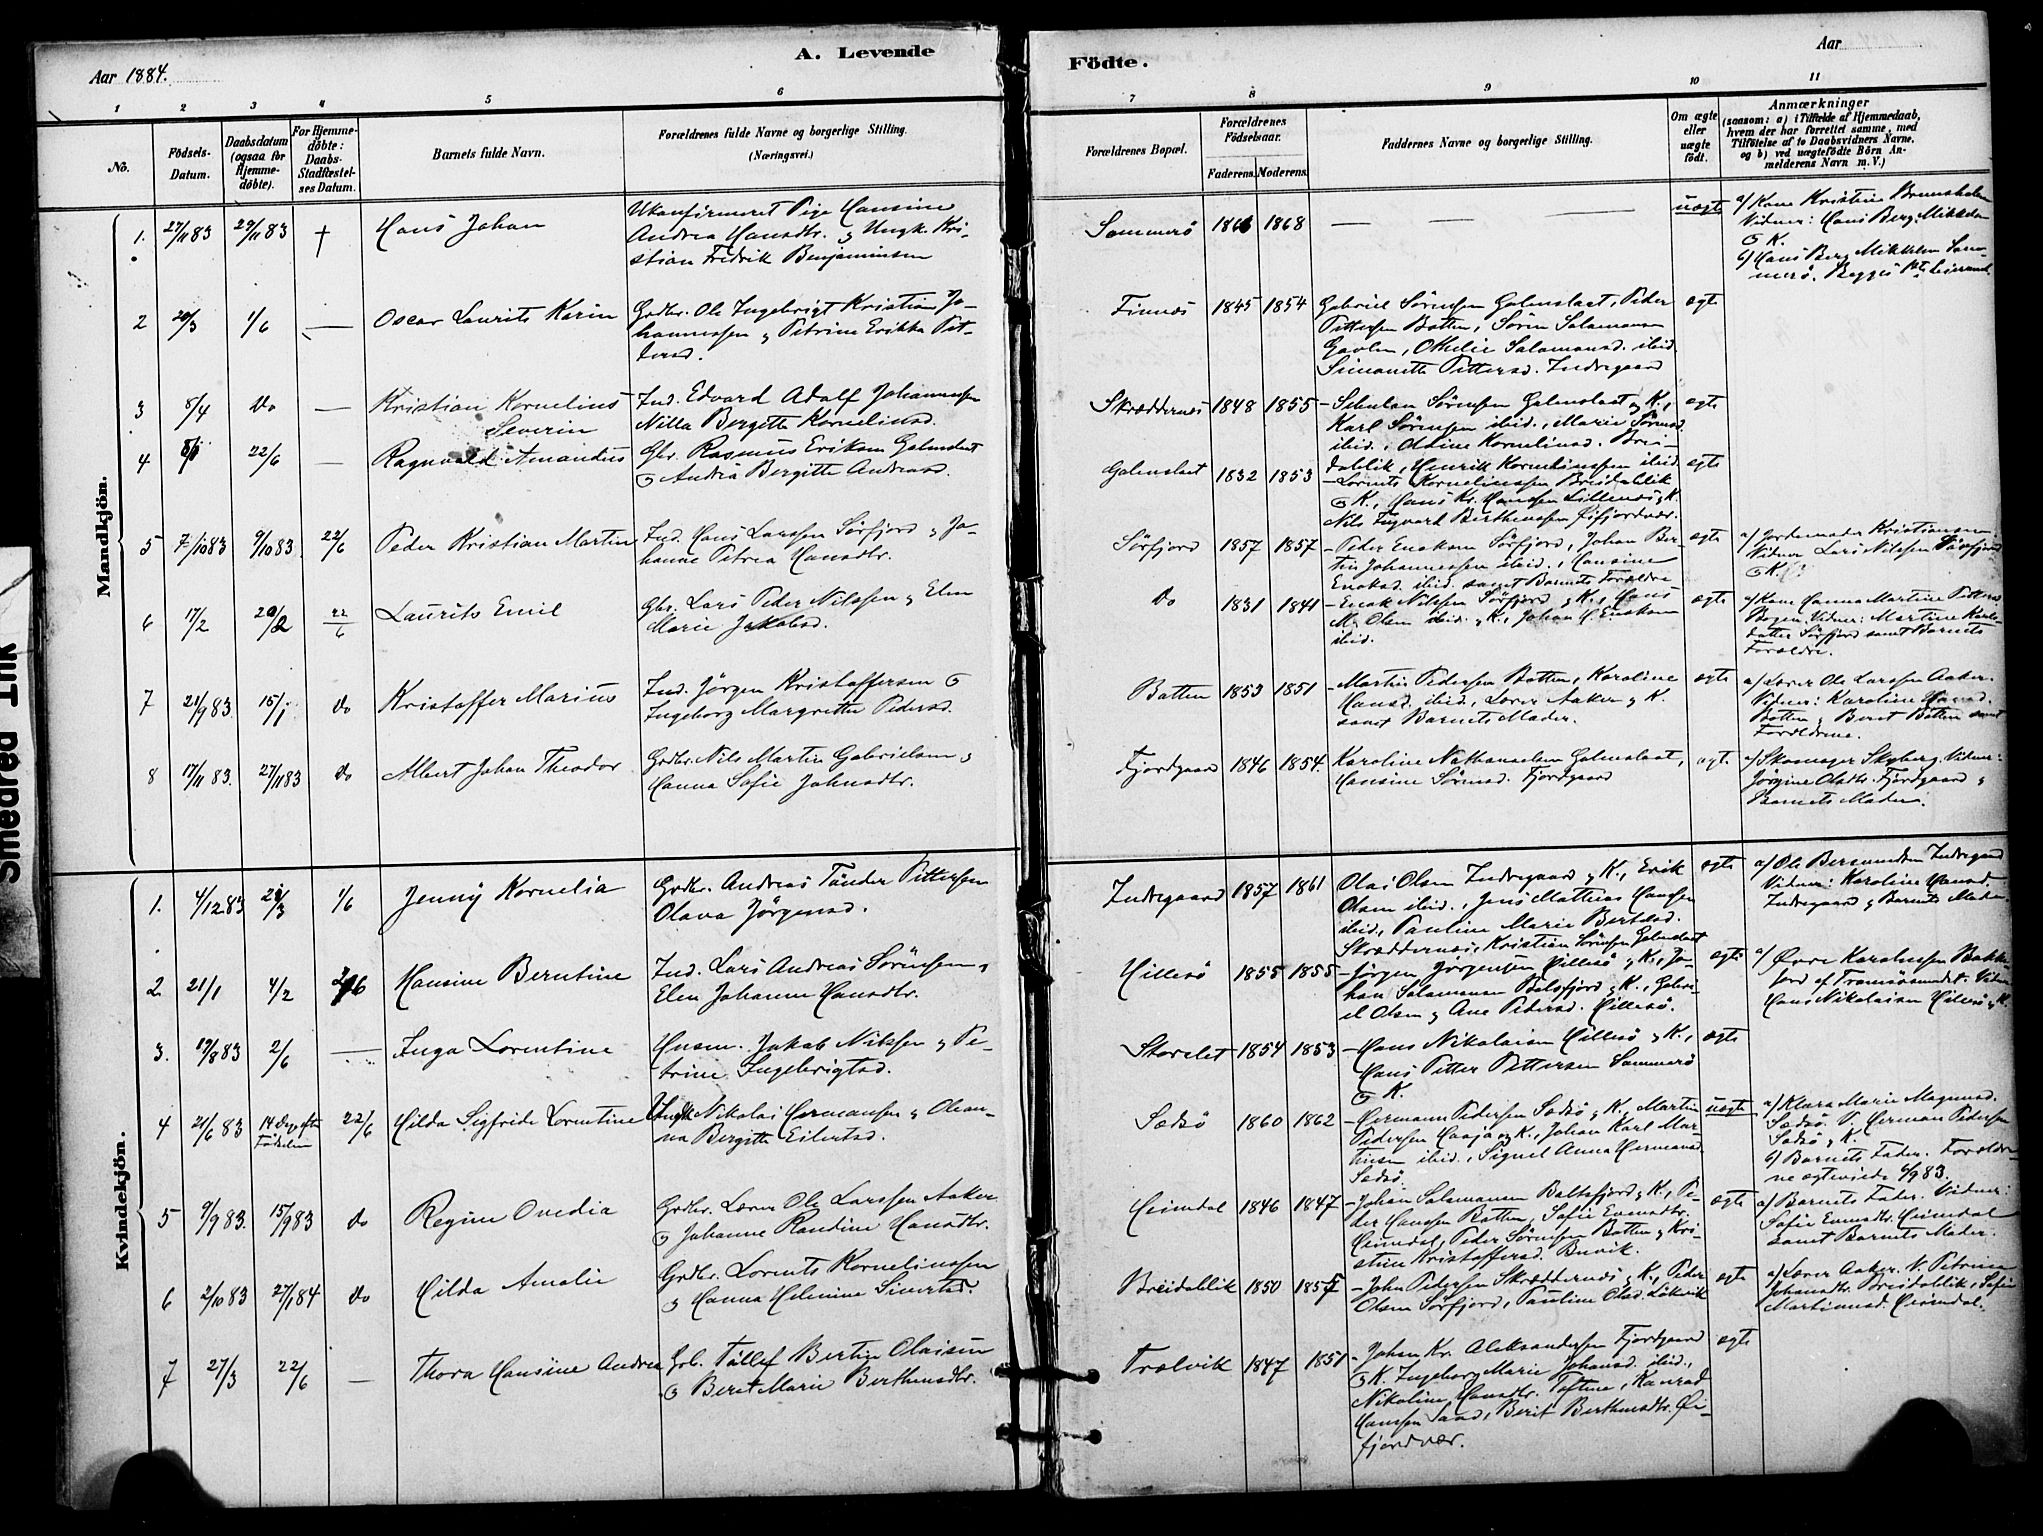 A. Levende
Födte.
Aar 1884.
Aar
1 2 3 4 5 6 7 8 9 10 11
No.
Födsels-
Datum.
Daabsdatum
(ogsaa for
Hjemme-
döbte).
For Hjemme-
döbte:
Daabs-
Stadfæstel-
ses Datum.
Barnets fulde Navn.
Forældrenes fulde Navne og borgerlige Stilling.
(Næringsvei.)
Forældrenes Bopæl.
Forældrenes
Födselsaar.
Faderens. Moderens.
Faddernes Navne og borgerlige Stilling.
Om ægte
eller
uægte
födt.
Anmærkninger
(saasom: a) i Tilfælde af Hjemmedaab,
hvem der har forrettet samme, med
Tilföielse af to Daabsvidners Navne,
og b) ved uægtefödte Börn An-
melderens Navn m. V.)
Mandkjön.
1. 27/11 83 29/11 83 † Hans Johan
Ukonfirmeret Pige Hansine
Andrea Hansdtr. og Ungk. Kri-
stian Fredrik Benjaminsen
Sommerö 1866 1868 — — — — uægte
a) Kone Kristine
Vidner: Hans Berg Mikkelsen
og K.
b) Hans Berg Mikkelsen Som-
merö. Begges
2 20/3 1/6 — Oscar Laurits Karin
Grdbr. Ole Ingebrigt Kristian Jo-
hannessen og Petrine Erikke Pet-
tersd.
Finnæs 1845 1854
Gabriel Sörensen Galmslaat, Peder
Pettersen Botten, Sören Salamonsen
Gavlen, Othelie Salamonsd. ibid.
Simonette Pettersd. Indregaard
ægte
3 8/4 Do — Kristian Kornelius
Severin
Ind. Edvard Adolf Johannessen
Nilla Bergitte Kornelinsd.
Skræddernæs 1848 1855
Schulan Sörensen Galmslaat og K.,
Karl Sörensen ibid., Marie Sörensd.
ibid., Olufine Kornelinsd. Brei-
dablik, Henrik Kornelinssen ibid.
ægte
4 8/1 22/6 — Ragnvald Amandus
Gbr. Rasmus Eriksen Galmslaat
og Andrea Bergitte Andreasd.
Galmslaat 1832 1853
Lorents Kornelinssen Breidablik
og K., Hans Kr. Hanssen Lillenæs og K.
Nils Ingvart Berthenssen Öifjordvær.
ægte
5 7/10 83 9/10 83. 22/6 Peder Kristian Martin
Ind. Hans Larssen Sörfjord og Jo-
hanne Petrea Hansdtr.
Sörfjord 1857 1857
Peder Enoksen Sörfjord, Johan Ber-
tin Johannessen ibid., Hansine
Enoksd. ibid. samt Barnets Forældre
ægte
a) Jordemoder Kristiansen
Vidner Lars Nilssen Sörfjord
og K.
6 17/2 20/2 22/6 Laurits Emil
Gbr. Lars Peder Nilssen og Elen
Marie Jakobsd.
Do 1831 1841
Enok Nilssen Sörfjord og K., Hans
M. Olsen ibid. og K., Johan H. Enoksen
ibid.
ægte
a) Kone Hanna Martine Petters
Bogen. Vidner: Martine Karls-
datter Sörfjord samt Barnets
Forældre.
7 21/9 83. 15/1 Do Kristoffer Marius
Ind. Jörgen Kristoffersen og
Ingeborg Margrethe Pedersd.
Botten 1853 1851
Martin Pedersen Botten, Karoline
Hansd. ibid., Lærer Aaker og K.
samt Barnets Moder.
ægte
a) Lærer Ole Larssen Aaker.
Vidner: Karoline Hansd.
Botten og Beret Botten samt
Forældrene.
8 17/11 83. 27/11 83 Do Albert Johan Theodor
Grdbr. Nils Martin Gabrielsen og
Hanna Sofie Johnsdtr.
Fjordgaard 1846 1854.
Karoline Nathanaelsen Galmslaat,
Hansine Sörensd. Fjordgaard
ægte
a) Skomager Skyberg. Vidner:
Jörgine Olsdtr. Fjordgaard og
Barnets Moder.
Kvindekjön.
1. 4/12 83 2/3 1/6 Jenny Kornelia
Grdbr. Andreas Tönder Pettersen
Olava Jörgensd.
Indregaard 1857 1861
Olai Olsen Indregaard og K., Erik
Olsen ibid., Jens Mathias Hanssen
ibid., Pauline Marie Bertelsd.
Skræddernæs, Kristian Sörensen Galmslaat
ægte
a) Ole Bersvendsen Indregaard
Vidner: Karoline Hansd.
Indregaard og Barnets Moder
2. 21/1 4/2 Hansine Berntine
Ind. Lars Andreas Sörensen og
Elen Johanne Hansdtr.
Hillesö 1855 1855
Jörgen Jörgensen Hillesö og K., Jo-
han Salamonsen Balsfjord og K., Gabri-
el Olsen og Ane Pedersd. Hillesö.
ægte
a) Karolussen Bakke-
jord af Tromsösundet. Vidner
Hans Nikolaisen Hillesö og K.
3. 19/8 83 2/6 — Inga Lorentine
Husm. Jakob Nilssen og Pe-
trine Ingebrigtsd.
Storslet 1854 1853
Hans Nikolaisen Hillesö og K.,
Hans Petter Pettersen Sommerö
og K.
ægte
4 21/6 83 14 Dage efter
Födselen 22/6 Hilda Sigfride Lorentine
Ungk. Nikolai Hermansen og Olean-
na Bergitte Eilertsd.
Sædsö 1860 1862
Hermann Pedersen Sædsö og K., Martin
Pedersen Haaja og K., Johan Karl Mar-
tinsen ibid., Signel Anna Hermansd.
Sædsö.
uægte
a) Klara Marie Magnusd.
Sædsö. V. Herman Pedersen
Sædsö og K.
b) Barnets Fader. Forældre-
ne ægteviede 6/9 83.
5 9/9 83. 15/9 83 Do Regine Ovedia
Grdbr. Lærer Ole Larssen Aaker
og Johanne Randine Hansdtr.
Heimdal 1846 1847
Johan Salamonsen Baltsfjord og K., Pe-
der Hanssen Botten, Sofie Evensdtr.
Heimdal, Peder Sörensen Botten og Kri-
stine Kristoffersd. Buvik.
ægte
a) Barnets Fader. Vidner:
Sofie Evensdtr. Heimdal
samt Barnets Moder.
6 2/10 83 27/1 84 Do Hilda Amalie
Grdbr. Lorents Kornelinssen
og Hanna Helmine Sivertsd.
Breidablik 1850 1857
John Pedersen Skræddernæs og K., Peder
Olsen Sörfjord, Pauline Olsd. Lökvik
ægte
a) Lærer Aaker. V. Petrine
Johansdtr. Breidablik, Sofie
Martinusd. Heimdal.
7 27/3 22/6 — Thora Hansine Andrea
Grb. Tollef Bertin Olaisen
og Beret Marie Berthensdtr.
Trælvik 1847 1851
Johan Kr. Aleksandersen Fjordgaard
og K. Ingeborg Marie Johansd. ibid.,
Nikoline Hansdtr. Toftene, Konrad
Hanssen Sand, Berit Berthensdtr. Öi-
fjordvær.
ægte